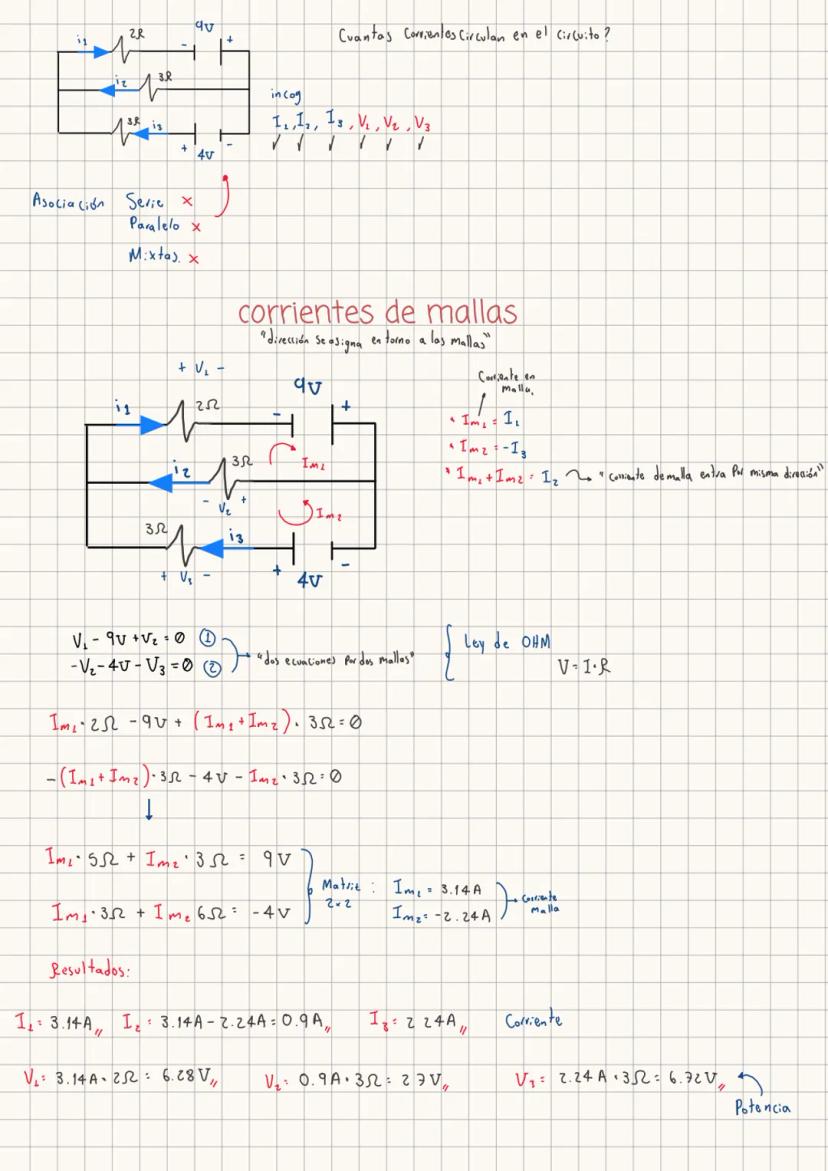 Cuantas Corrientes Circulan en el circuito?
9V
i1 2Ω - +
i2 3Ω
3Ω i3
+ 4V -
incog
I1, I2, I3, V1, V2, V3
✓ ✓ ✓ ✓ ✓ ✓
Asociación Serie ×
Paralelo ×
Mixtas. ×
corrientes de mallas
"dirección se asigna en torno a las mallas"
+ V1 -
9V
i1 2Ω - +
i2 3Ω Im1
- V2 +
Im2
3Ω i3
+ V3 - + 4V -
Corriente en
malla.
* Im1 = I1
* Im2 = -I3
* Im1 + Im2 = I2 → "corriente de malla entra por misma dirección"
V1 - 9V + V2 = 0 ①
-V2 - 4V - V3 = 0 ②
"dos ecuaciones por dos mallas"
Ley de OHM
V = I·R
Im1 · 2Ω - 9V + (Im1 + Im2) · 3Ω = 0
-(Im1 + Im2) · 3Ω - 4V - Im2 · 3Ω = 0
↓
Im1 · 5Ω + Im2 · 3Ω = 9V
Im1 · 3Ω + Im2 6Ω = -4V
Matriz :
2x2
Im1 = 3.14A
Im2 = -2.24A
Corriente
malla
Resultados:
I1 = 3.14A,, I2 = 3.14A - 2.24A = 0.9A,, I3 = 2 24A,, Corriente
V1 = 3.14A · 2Ω = 6.28V,, V2 = 0.9A · 3Ω = 2 7V,, V3 = 2.24A · 3Ω = 6.72V,,
Potencia